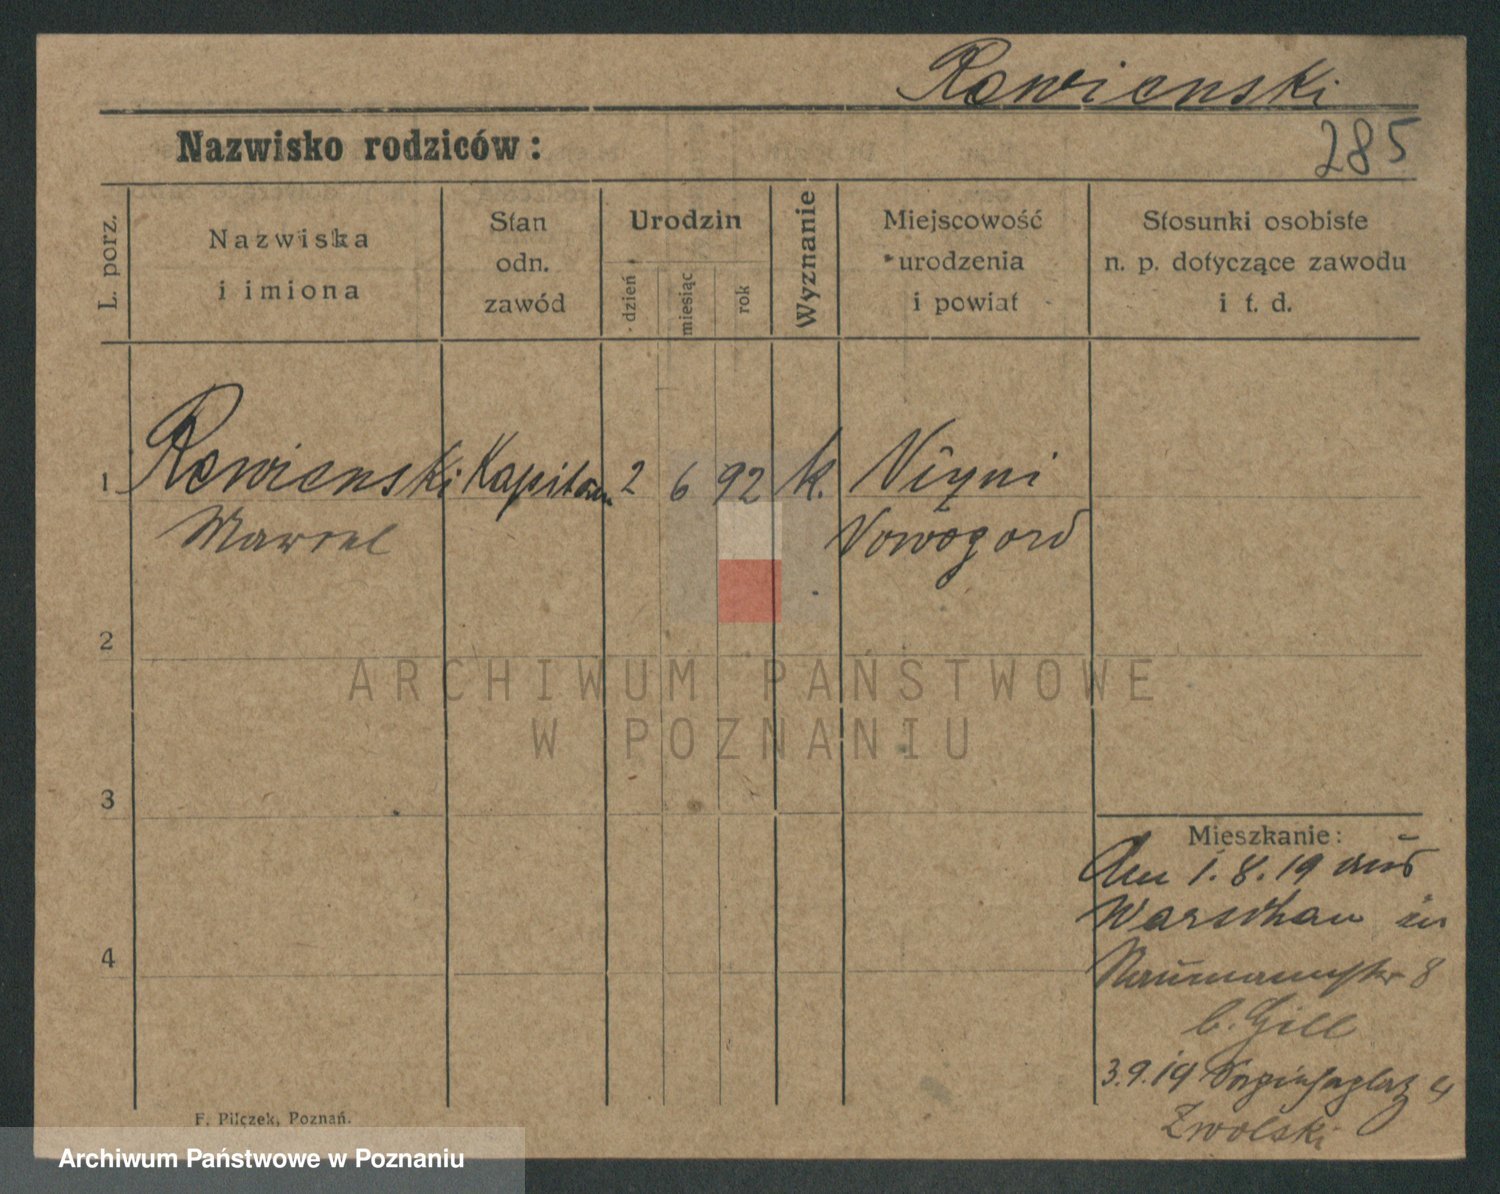 Rawienski
Nazwisko rodziców:
285
L. porz.
Nazwiska
i imiona
Stan
odn.
zawód
Urodzin
dzień
miesiąc
rok
Wyznanie
Miejscowość
urodzenia
i powiat
Stosunki osobiste
n. p. dotyczące zawodu
i t. d.
1 Rawienski Kapitan 2 6 92 k. Niżni
Marcel Nowogord
2
ARCHIWUM PAŃSTWOWE
W POZNANIU
3
Mieszkanie:
Am 1.8.19 aus
Warschau in
Naumannstr 8
b. Gill
4
3.9.19 4
Zwolski
F. Pilczek, Poznań.
Archiwum Państwowe w Poznaniu